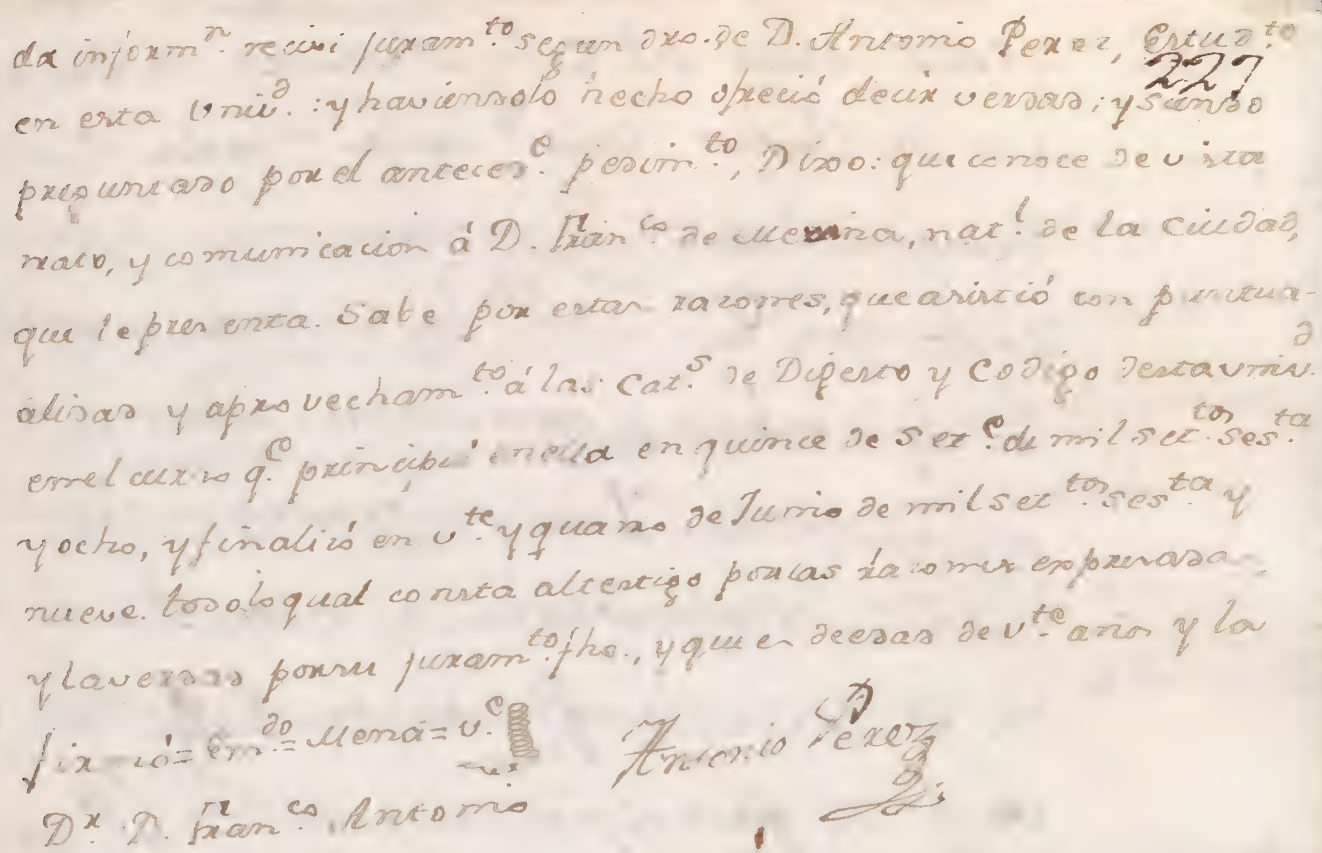 da inform.n recivi juram.to segun dro. de D. Antonio Perez, Estud.to
227
en esta Univ.d : y haviendolo hecho ofreció decir verdad; y siendo
preguntado por el anteced.e pedim.to, Dixo: que conoce de vista
trato, y comunicacion á D. Fran.co de Mena, nat.l de la Ciudad,
que le presenta. Sabe por estas razones, que asistió con puntua-
alidad y aprovecham.to á las Cat.s de Digesto y Codigo desta univ.d
en el curso q.e principió en ella en quince de Set.e de mil set.tos ses.ta
y ocho, y finalizó en v.te y quatro de Junio de mil set.tos ses.ta y
nueve. todo lo qual consta al testigo por las razones expresadas
y la verdad por su juram.to fho., y que es de edad de v.te años y lo
firmó = Em.do = Mena = v.e
Antonio Perez
D.r D. Fran.co Antonio